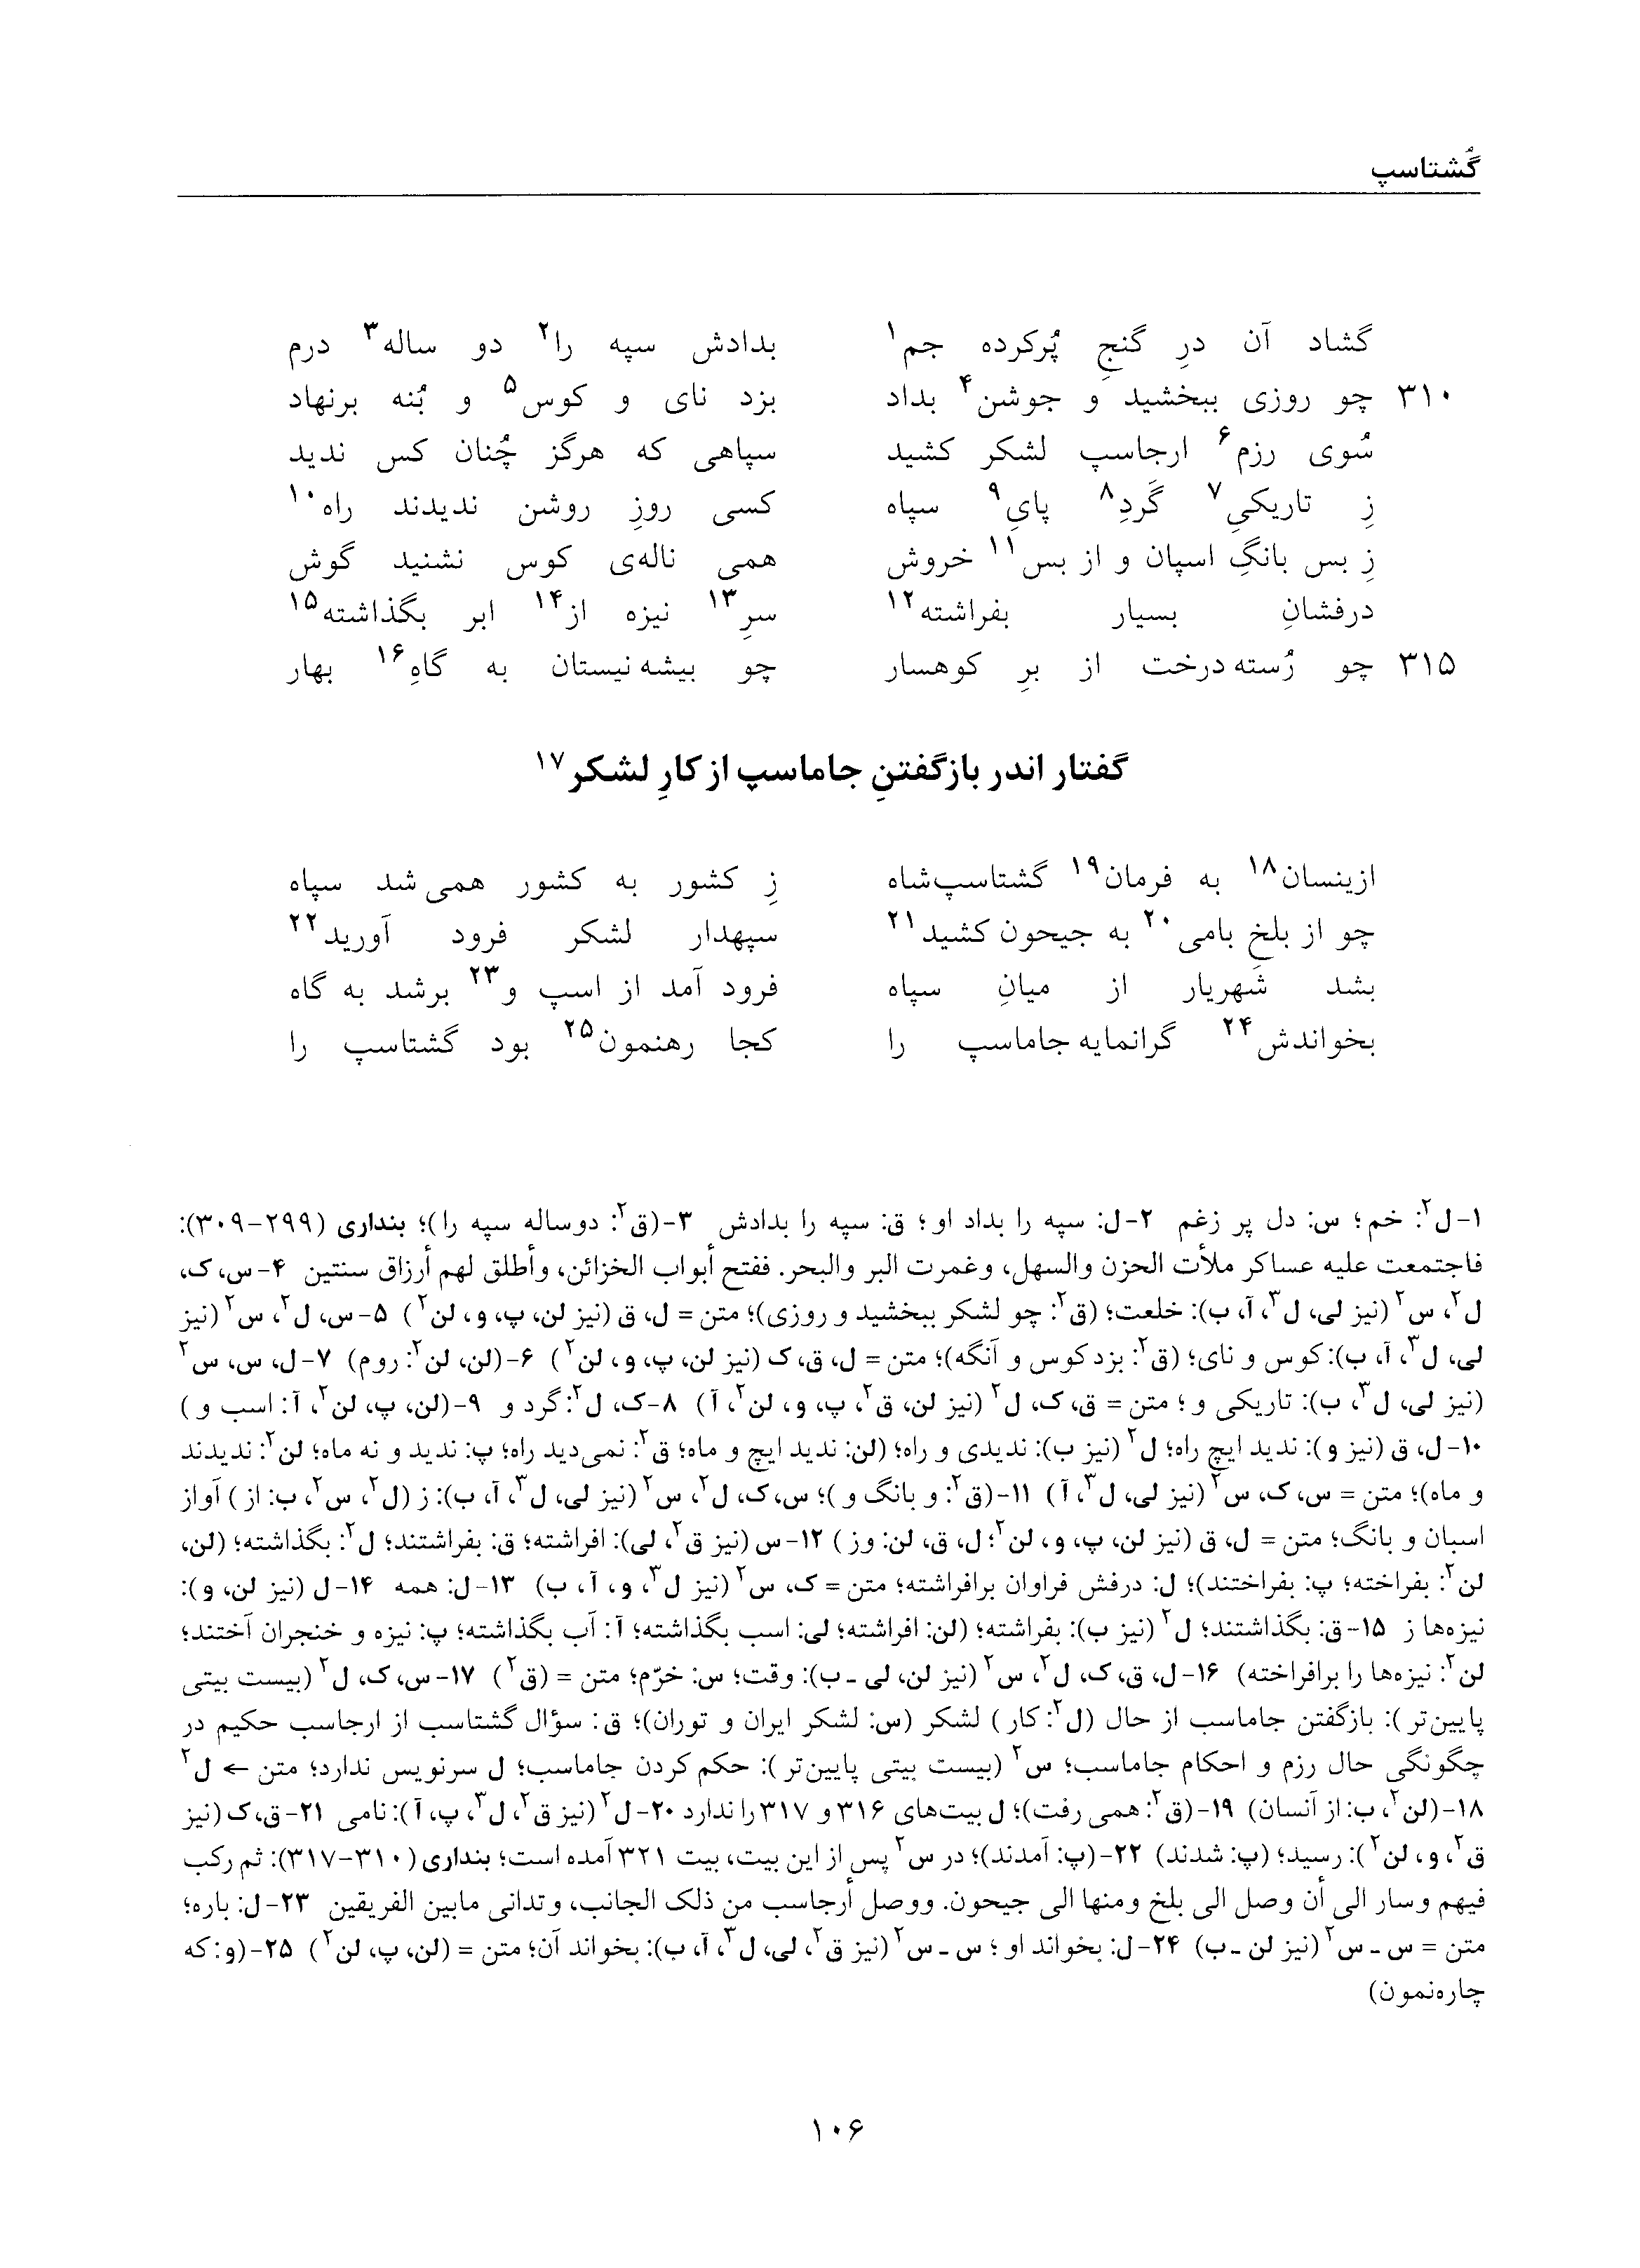 گُشتاسپ
گشاد آن درِ گنجِ پُرکرده جم۱ بدادش سپه را۲ دو ساله۳ درم
۳۱۰ چو روزی ببخشید و جوشن۴ بداد بزد نای و کوس۵ و بُنه برنهاد
سُوی رزم۶ ارجاسپ لشکر کشید سپاهی که هرگز چُنان کس ندید
زِ تاریکیِ۷ گَردِ۸ پایِ۹ سپاه کسی روزِ روشن ندیدند راه۱۰
زِ بس بانگِ اسپان و از بس۱۱ خروش همی ناله‌ی کوس نشنید گوش
درفشانِ بسیار بفراشته۱۲ سرِ۱۳ نیزه از۱۴ ابر بگذاشته۱۵
۳۱۵ چو رُسته درخت از برِ کوهسار چو بیشه نیستان به گاهِ۱۶ بهار
گفتار اندر بازگفتنِ جاماسپ از کارِ لشکر۱۷
ازینسان۱۸ به فرمان۱۹ گشتاسپ‌شاه زِ کشور به کشور همی شد سپاه
چو از بلخِ بامی۲۰ به جیحون کشید۲۱ سپهدار لشکر فرود آورید۲۲
بشد شَهریار از میانِ سپاه فرود آمد از اسپ و۲۳ برشد به گاه
بخواندش۲۴ گرانمایه جاماسپ را کجا رهنمون۲۵ بود گشتاسپ را
۱-ل۲: خم؛ س: دل پر زغم ۲-ل: سپه را بداد او؛ ق: سپه را بدادش ۳-(ق۲: دوساله سپه را)؛ بنداری (۲۹۹-۳۰۹):
فاجتمعت علیه عساکر ملأت الحزن والسهل، وغمرت البر والبحر. ففتح أبواب الخزائن، وأطلق لهم أرزاق سنتین ۴-س، ک،
ل۲، س۲ (نیز لی، ل۳، آ، ب): خلعت؛ (ق۲: چو لشکر ببخشید و روزی)؛ متن = ل، ق (نیز لن، پ، و، لن۲) ۵-س، ل۲، س۲ (نیز
لی، ل۳، آ، ب): کوس و نای؛ (ق۲: بزد کوس و آنگه)؛ متن = ل، ق، ک (نیز لن، پ، و، لن۲) ۶-(لن، لن۲: روم) ۷-ل، س، س۲
(نیز لی، ل۳، ب): تاریکی و؛ متن = ق، ک، ل۲ (نیز لن، ق۲، پ، و، لن۲، آ) ۸-ک، ل۲: گرد و ۹-(لن، پ، لن۲، آ: اسب و)
۱۰-ل، ق (نیز و): ندید ایچ راه؛ ل۲ (نیز ب): ندیدی و راه؛ (لن: ندید ایچ و ماه؛ ق۲: نمی‌دید راه؛ پ: ندید و نه ماه؛ لن۲: ندیدند
و ماه)؛ متن = س، ک، س۲ (نیز لی، ل۳، آ) ۱۱-(ق۲: و بانگ و)؛ س، ک، ل۲، س۲ (نیز لی، ل۳، آ، ب): ز (ل۲، س۲، ب: از) آواز
اسبان و بانگ؛ متن = ل، ق (نیز لن، پ، و، لن۲؛ ل، ق، لن: وز) ۱۲-س (نیز ق۲، لی): افراشته؛ ق: بفراشتند؛ ل۲: بگذاشته؛ (لن،
لن۲: بفراخته؛ پ: بفراختند)؛ ل: درفش فراوان برافراشته؛ متن = ک، س۲ (نیز ل۳، و، آ، ب) ۱۳-ل: همه ۱۴-ل (نیز لن، و):
نیزه‌ها ز ۱۵-ق: بگذاشتند؛ ل۲ (نیز ب): بفراشته؛ (لن: افراشته؛ لی: اسب بگذاشته؛ آ: آب بگذاشته؛ پ: نیزه و خنجران آختند؛
لن۲: نیزه‌ها را برافراخته) ۱۶-ل، ق، ک، ل۲، س۲ (نیز لن، لی - ب): وقت؛ س: خرّم؛ متن = (ق۲) ۱۷-س، ک، ل۲ (بیست بیتی
پایین‌تر): بازگفتن جاماسب از حال (ل۲: کار) لشکر (س: لشکر ایران و توران)؛ ق: سؤال گشتاسب از ارجاسب حکیم در
چگونگی حال رزم و احکام جاماسب؛ س۲ (بیست بیتی پایین‌تر): حکم کردن جاماسب؛ ل سرنویس ندارد؛ متن ← ل۲
۱۸-(لن۲، ب: از آنسان) ۱۹-(ق۲: همی رفت)؛ ل بیت‌های ۳۱۶ و ۳۱۷ را ندارد ۲۰-ل۲ (نیز ق۲، ل۳، پ، آ): نامی ۲۱-ق، ک (نیز
ق۲، و، لن۲): رسید؛ (پ: شدند) ۲۲-(پ: آمدند)؛ در س۲ پس از این بیت، بیت ۳۲۱ آمده است؛ بنداری (۳۱۰-۳۱۷): ثم رکب
فیهم وسار الی أن وصل الی بلخ ومنها الی جیحون. ووصل أرجاسب من ذلک الجانب، وتدانی مابین الفریقین ۲۳-ل: باره؛
متن = س - س۲ (نیز لن - ب) ۲۴-ل: بخواند او؛ س - س۲ (نیز ق۲، لی، ل۳، آ، ب): بخواند آن؛ متن = (لن، پ، لن۲) ۲۵-(و: که
چاره‌نمون)
۱۰۶